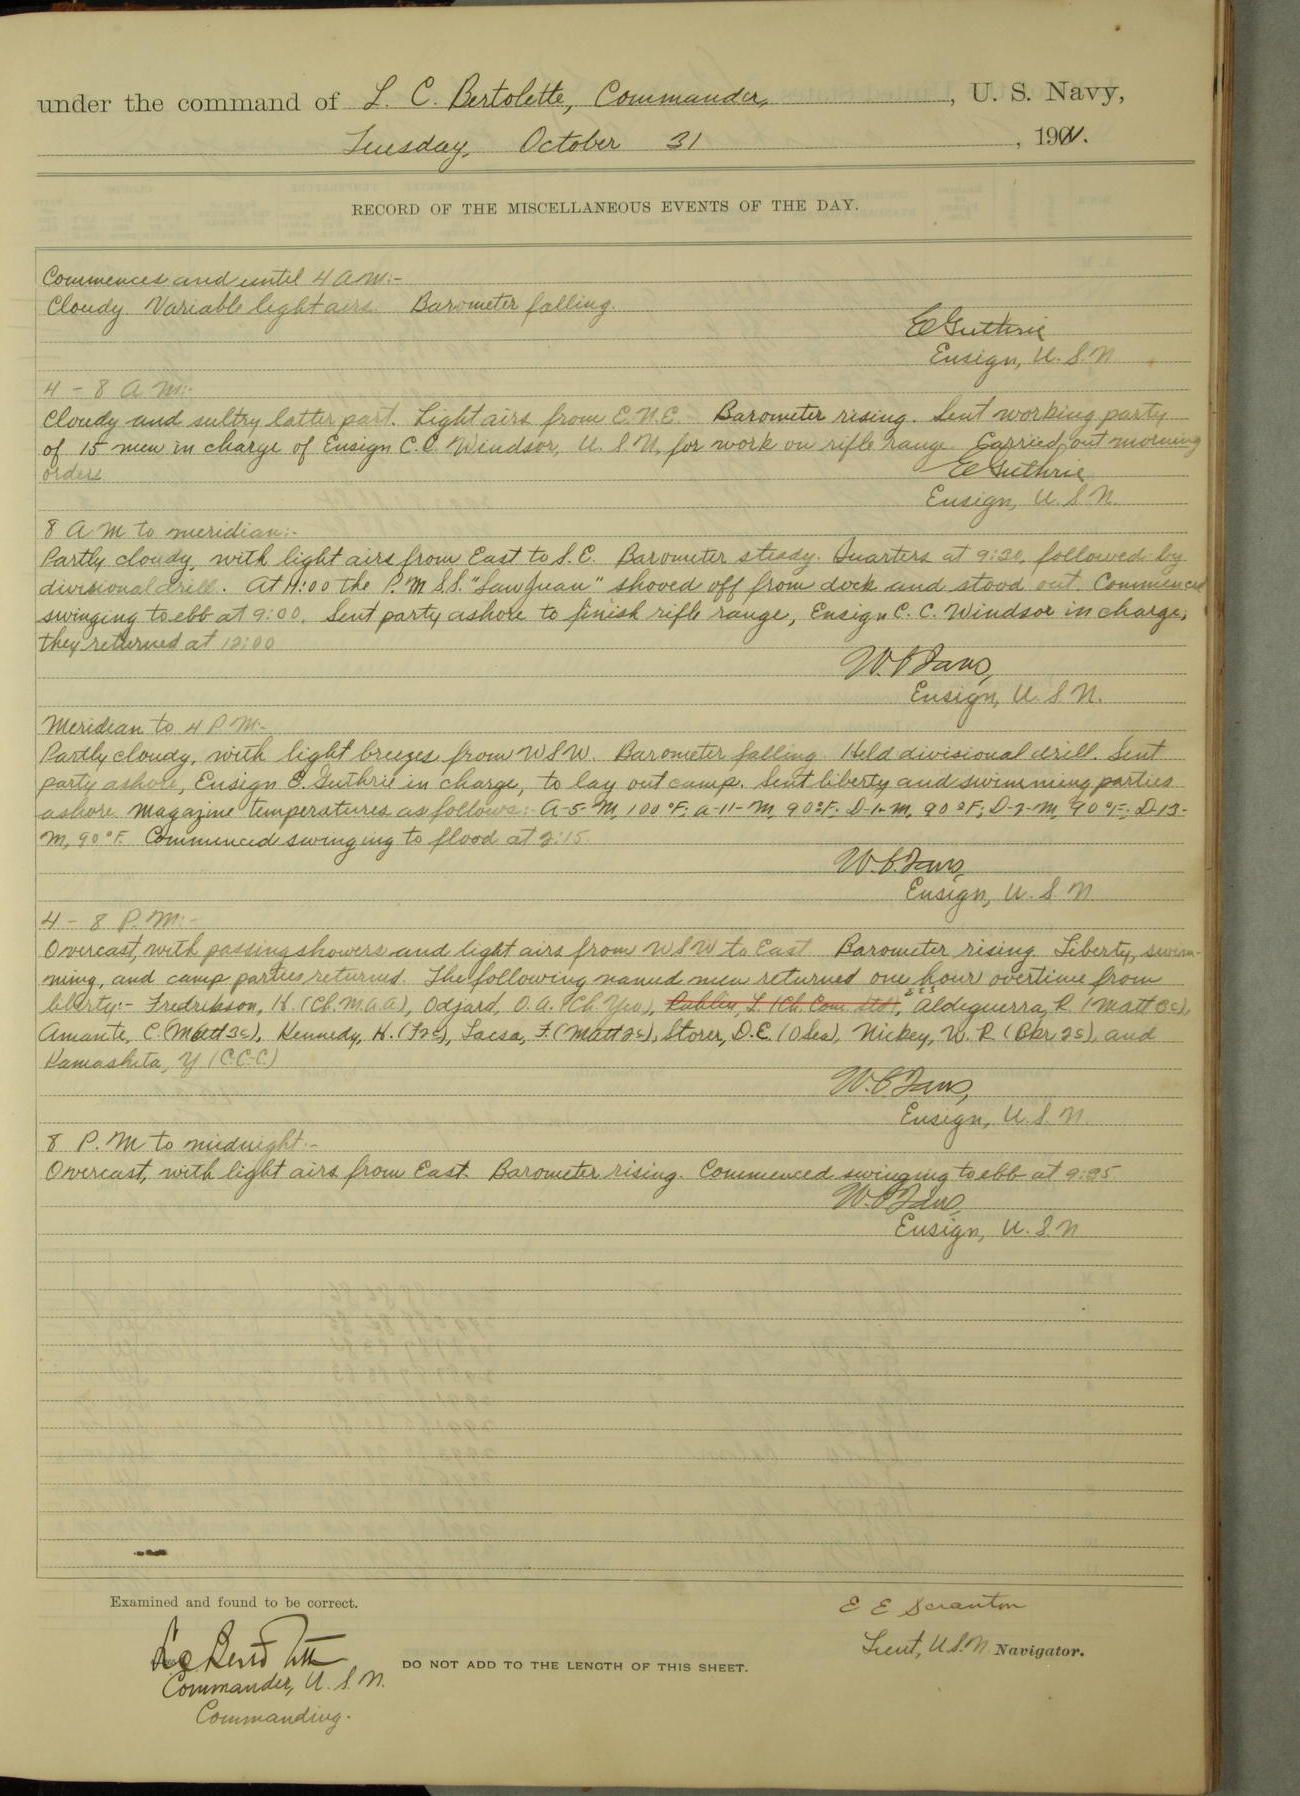 under the command of L. C. Bertolette, Commander, , U. S. Navy,
Tuesday, October 31 , 1911.
RECORD OF THE MISCELLANEOUS EVENTS OF THE DAY.
Commences and until 4 A M:-
Cloudy. Variable light airs. Barometer falling.
E Guthrie
Ensign, U. S. N
4 - 8 A M:-
Cloudy and sultry latter part. Light airs from E.N.E. Barometer rising. Sent working party
of 15 men in charge of Ensign C. C. Windsor, U. S. N, for work on rifle range. Carried out morning
orders
E Guthrie
Ensign, U. S. N.
8 A M to meridian:-
Partly cloudy, with light airs from East to S. E. Barometer steady. Quarters at 9:30, followed by
divisional drill. At 11:00 the P. M S.S. "San Juan" shoved off from dock and stood out. Commenced
swinging to ebb at 9:00. Sent party ashore to finish rifle range, Ensign C. C. Windsor in charge,
they returned at 12:00
Ensign, U. S. N.
Meridian to 4 P M:-
Partly cloudy, with light breezes from W S W. Barometer falling. Held divisional drill. Sent
party ashore, Ensign E. Guthrie in charge, to lay out camp. Sent liberty and swimming parties
ashore. Magazine temperatures as follows:- A-5-M, 100°F; A-11-M, 90°F; D-1-M, 90°F; D-7-M, 90°F; D-13-
M, 90°F. Commenced swinging to flood at 2:15.
Ensign, U. S. N
4 - 8 P. M:-
Overcast, with passing showers and light airs from W S W to East. Barometer rising. Liberty, swim-
ming, and camp parties returned. The following named men returned one hour overtime from
liberty:- Fredrikson, H. (Ch. M.A.A), Odjard, O. A. (Ch. Yeo), L. (Ch. Com. Std), Aldeguerra, R. (Matt 3c),
Amante, C. (Matt 3c), Kennedy, H. (F2c), Lacsa, F. (Matt 3c), Storer, D. E. (O Sea), Nickey, W. R. (Bkr 2c), and
Kamashita, Y (C.C.C.)
Ensign, U. S. N.
8 P. M to midnight:-
Overcast, with light airs from East. Barometer rising. Commenced swinging to ebb at 9:25
Ensign, U. S. N
Examined and found to be correct.
E E Scranton
Lieut, U.S.N. Navigator.
DO NOT ADD TO THE LENGTH OF THIS SHEET.
Commander, U. S. N.
Commanding.